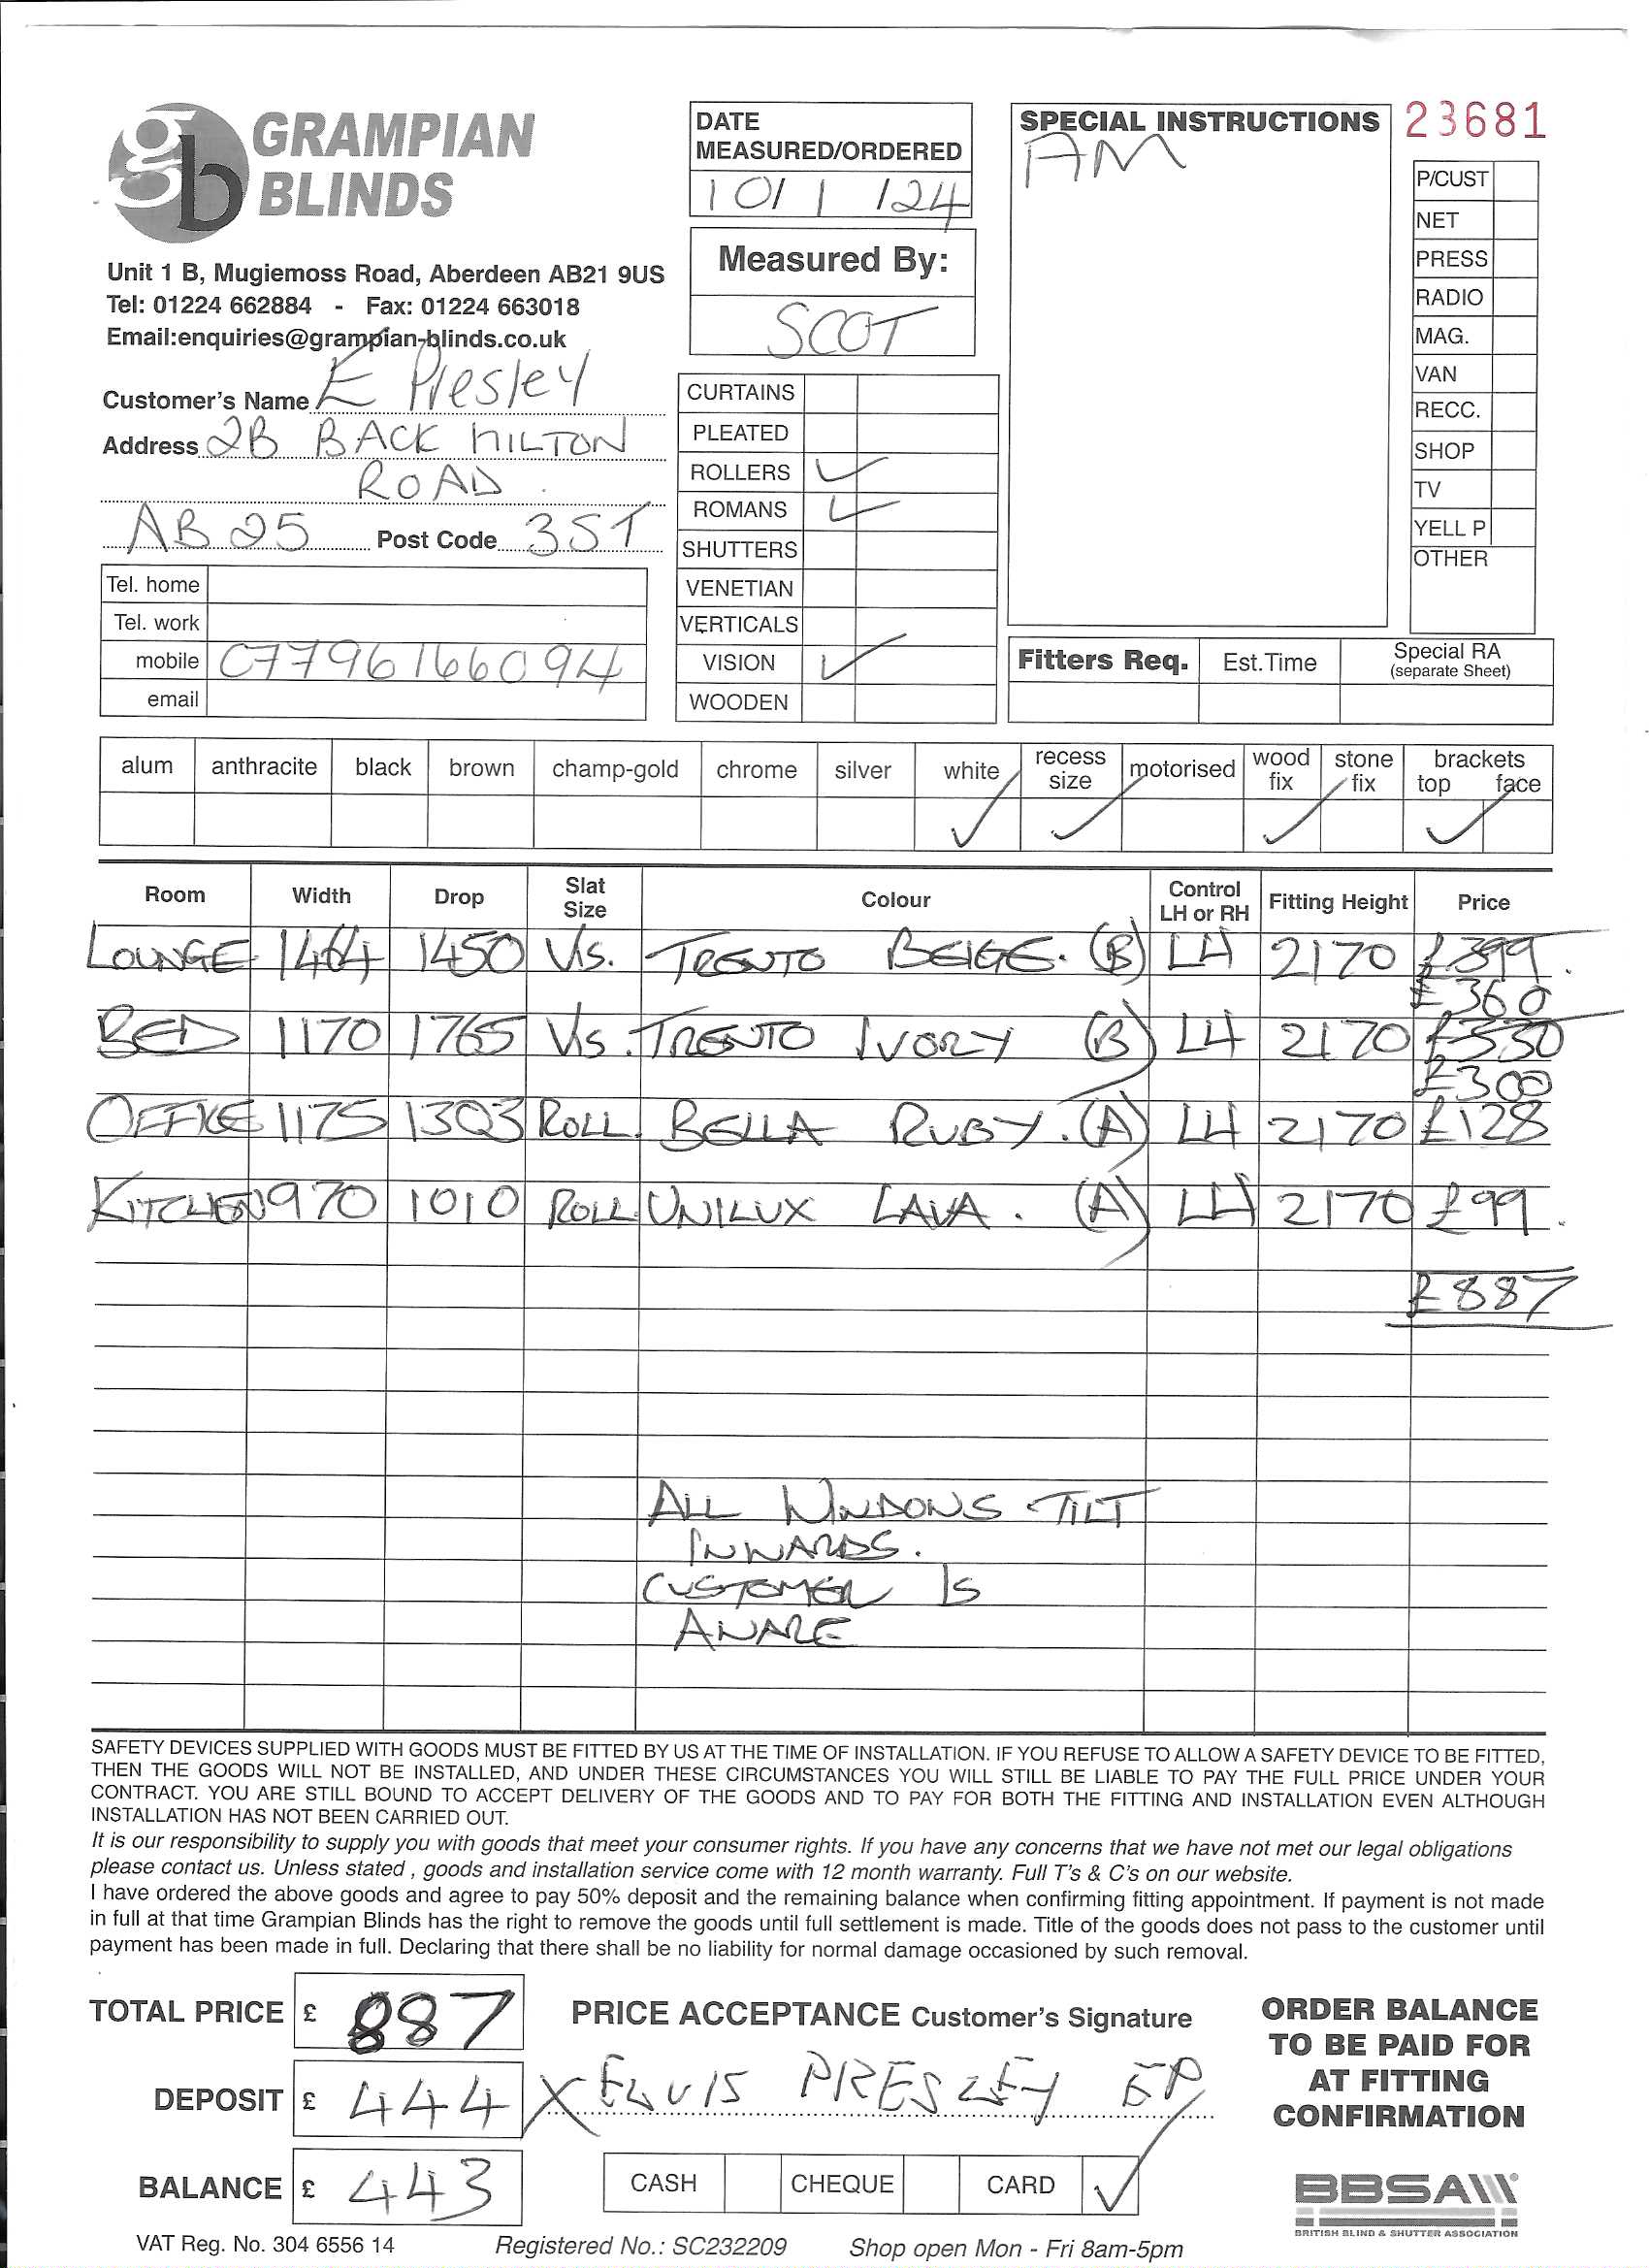 GRAMPIAN
BLINDS
Unit 1 B, Mugiemoss Road, Aberdeen AB21 9US
Tel: 01224 662884 - Fax: 01224 663018
Email:enquiries@grampian-blinds.co.uk
Customer's Name E Presley
Address 2B BACK HILTON
ROAD.
AB25 Post Code 3ST
Tel. home
Tel. work
mobile 07796166094
email
DATE
MEASURED/ORDERED
10/ 1 /24
Measured By:
SCOT
CURTAINS
PLEATED
ROLLERS ✓
ROMANS ✓
SHUTTERS
VENETIAN
VERTICALS
VISION ✓
WOODEN
SPECIAL INSTRUCTIONS
AM
23681
P/CUST
NET
PRESS
RADIO
MAG.
VAN
RECC.
SHOP
TV
YELL P
OTHER
Fitters Req. Est.Time Special RA
(separate Sheet)
alum anthracite black brown champ-gold chrome silver white recess size motorised wood fix stone fix brackets top face
✓ ✓ ✓ ✓
Room Width Drop Slat Size Colour Control LH or RH Fitting Height Price
LOUNGE 1464 1450 Vis. TRENTO BEIGE. (B) LH 2170 £399
£360
BED 1170 1765 Vis. TRENTO IVORY (B) LH 2170 £330
£300
OFFICE 1175 1303 ROLL. BELLA RUBY. (A) LH 2170 £128
KITCHEN 970 1010 ROLL UNILUX LAVA. (A) LH 2170 £99.
£887
ALL WINDOWS TILT
INWARDS.
CUSTOMER IS
AWARE
SAFETY DEVICES SUPPLIED WITH GOODS MUST BE FITTED BY US AT THE TIME OF INSTALLATION. IF YOU REFUSE TO ALLOW A SAFETY DEVICE TO BE FITTED,
THEN THE GOODS WILL NOT BE INSTALLED, AND UNDER THESE CIRCUMSTANCES YOU WILL STILL BE LIABLE TO PAY THE FULL PRICE UNDER YOUR
CONTRACT. YOU ARE STILL BOUND TO ACCEPT DELIVERY OF THE GOODS AND TO PAY FOR BOTH THE FITTING AND INSTALLATION EVEN ALTHOUGH
INSTALLATION HAS NOT BEEN CARRIED OUT.
It is our responsibility to supply you with goods that meet your consumer rights. If you have any concerns that we have not met our legal obligations
please contact us. Unless stated , goods and installation service come with 12 month warranty. Full T's & C's on our website.
I have ordered the above goods and agree to pay 50% deposit and the remaining balance when confirming fitting appointment. If payment is not made
in full at that time Grampian Blinds has the right to remove the goods until full settlement is made. Title of the goods does not pass to the customer until
payment has been made in full. Declaring that there shall be no liability for normal damage occasioned by such removal.
TOTAL PRICE £ 887
DEPOSIT £ 444
BALANCE £ 443
PRICE ACCEPTANCE Customer's Signature
X ELVIS PRESLEY EP
CASH CHEQUE CARD ✓
ORDER BALANCE
TO BE PAID FOR
AT FITTING
CONFIRMATION
BBSA
BRITISH BLIND & SHUTTER ASSOCIATION
VAT Reg. No. 304 6556 14 Registered No.: SC232209 Shop open Mon - Fri 8am-5pm